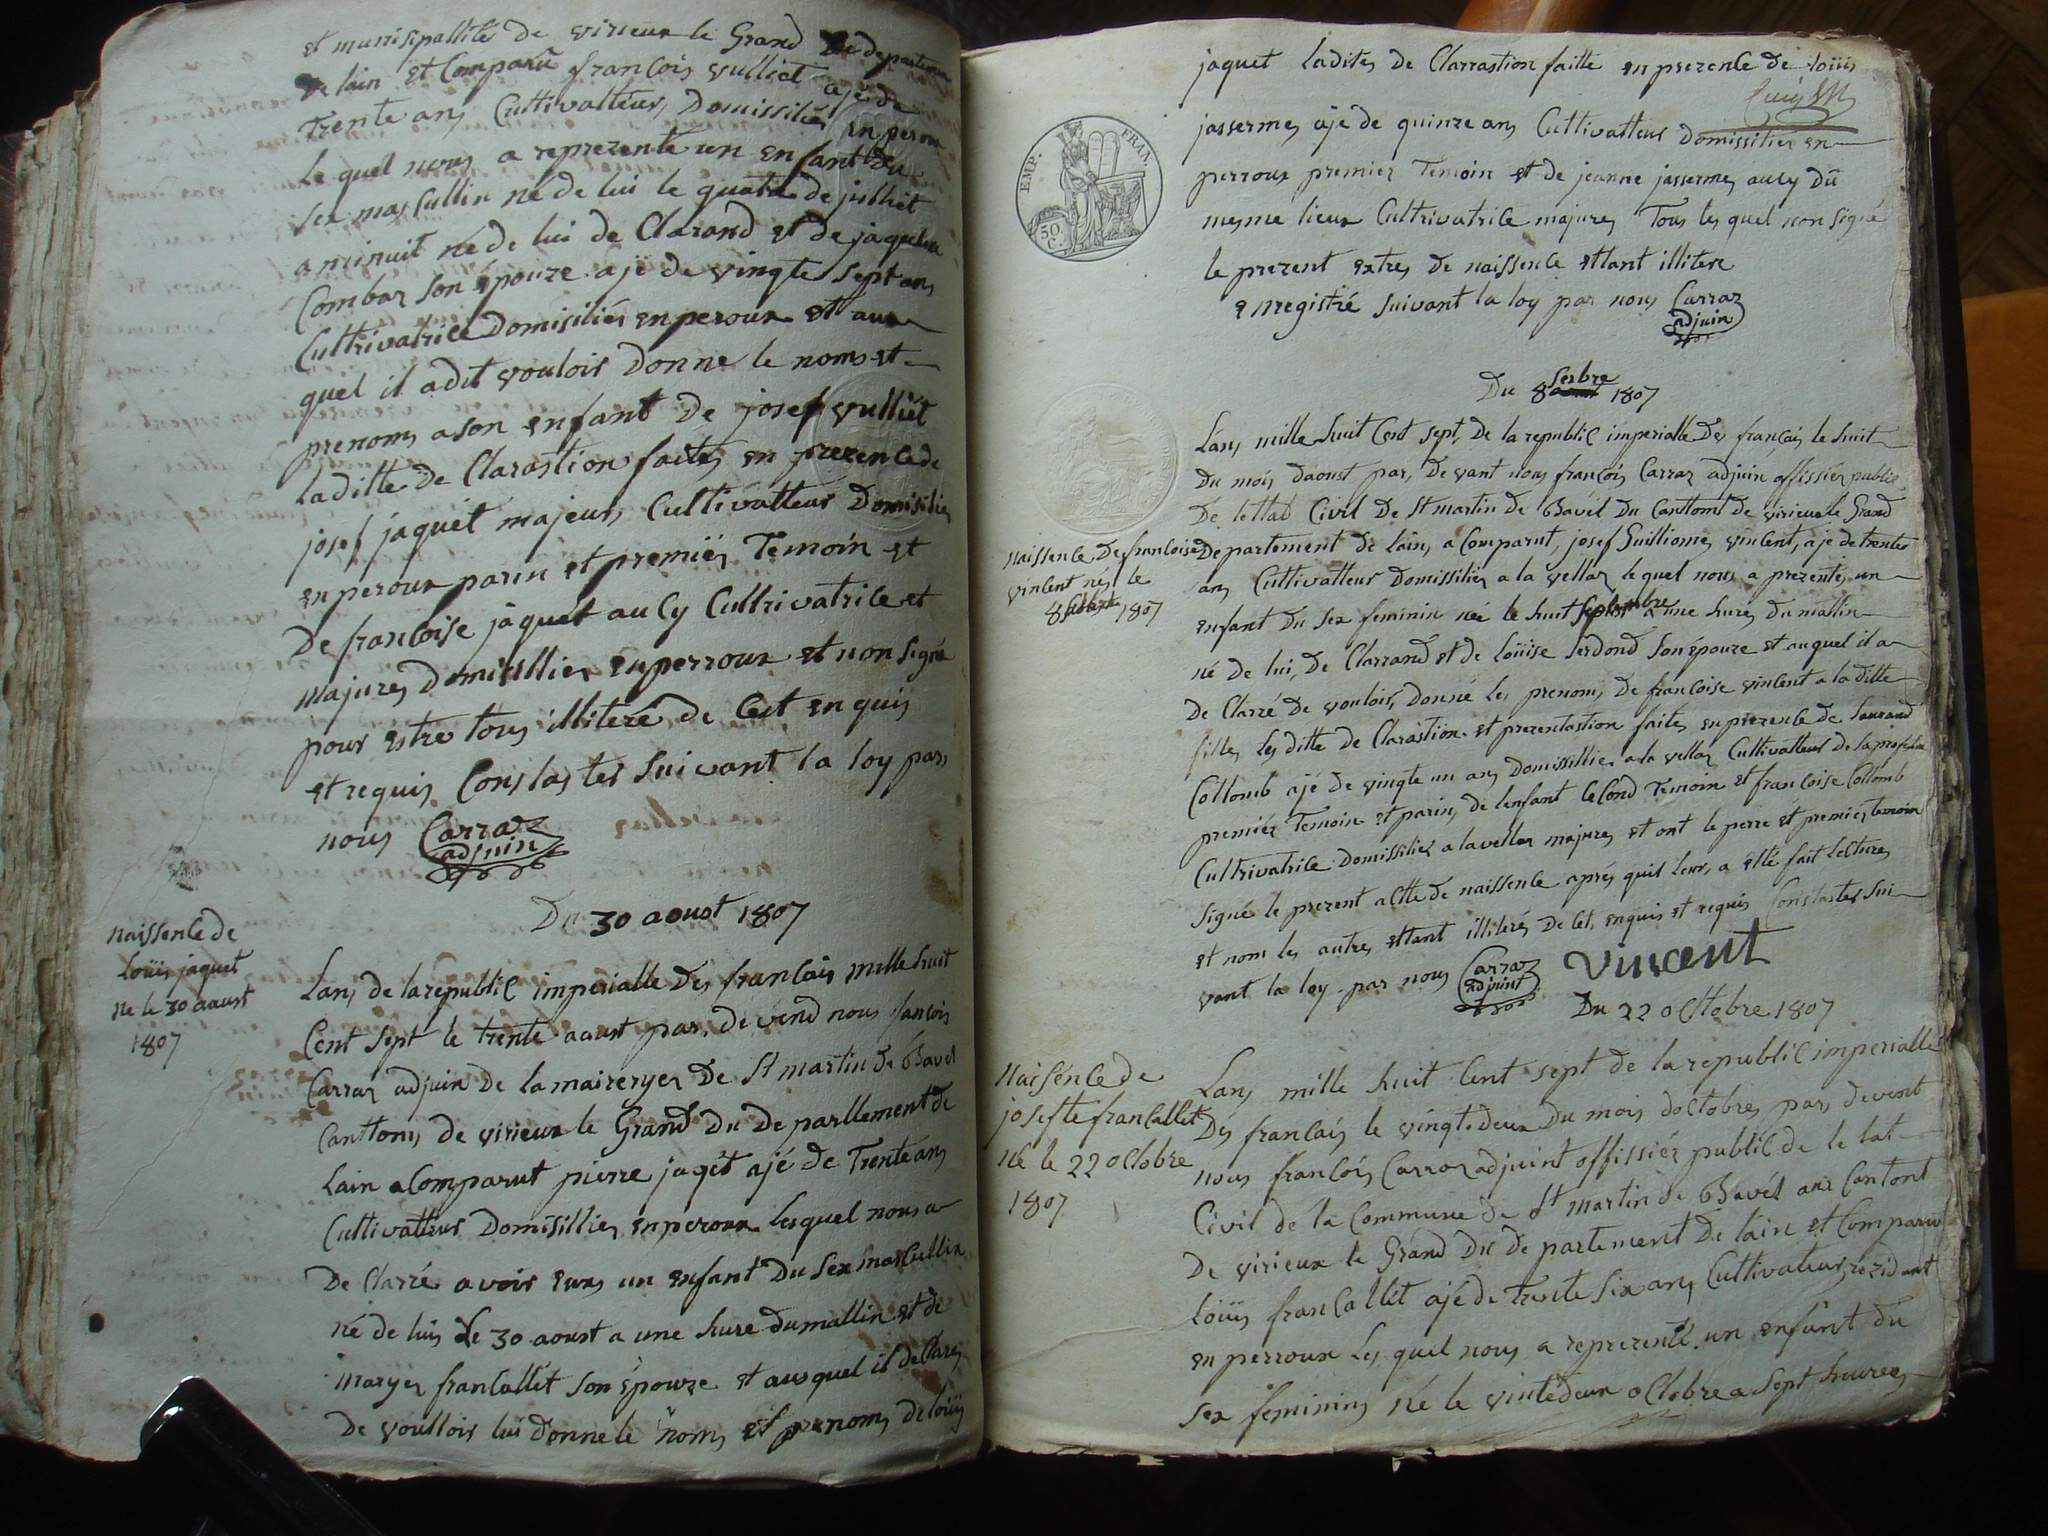 et municipallité de virieux le Grand du departement
de lain et Comparû françois vulliet ajé de
trente ans Cultivatteur, Domissilié en peroux
Le quel nous a reprezenté un enfant du
sex masCullin né de lui le quatre de julliet
a minuit né de lui de Clarand et de jaqueline
Combaz son épouze ajé de vingte sept ans
Cultrivatrice Domisiliés en peroux et aux
quel il a dit vouloir Donne le noms et
prenoms a son enfant de josef vulliet
laditte de Clarastion faites en prezence de
josef jaquet majeurs Cultivatteur Domisilié
en peroux parin et premier Temoin et
De francoise jaquet aucy Cultrivatrice et
majures Domisillier en perroux et non signé
pour estre tous illiteré de Cest enquis
et requis Constaster suivant la loy par
nous Carraz
adjuin
Du 30 aoust 1807
Naissence de
Loüis jaquet
Né le 30 aoust
1807
Lans de la republic imperialle Des francais mille huit
Cent sept le trente aoust par, de vend nous francois
Carraz adjuin de la maireryes De St martin de Bavel
Canttons de virieux le Grand Du De parttement de
Lain a Comparut pierre jaqet ajé de Trente ans
Cultivatteur Domisilliés en peroux lesquel nous a
De Clarré avoir eux un enfant Du sex masCullin
né de luis Le 30 aoust a une hure du mattin et de
maryes francallet son épouze et auxquel il deClares
De voullois lui donne le noms et prenoms de loüis
jaquet Ladites de Clarrastion faitte en prezence de loüis
jassermes ajé de quinze ans Cultivatteur Domissiliés en
perroux premier Temoin et de jeanne jassermes aucy dû
mesme lieux Cultrivatrice majures Tous les quel non signé
le prezent extres de naissence ettant illitere
enregistré suivant la loy par nous Carraz
adjuin
EMP. FRAN.
50. C.
Du 8 serbre 1807
Lans mille huit Cent sept, De la republic imperialle Des francais le huit
Du mois daoust par, De vant nous francois Carraz adjuin offissier public
De lettat Civil De St martin de Bavel Du Canttont de virieux le Grand
Naissence De francoise
vincent nés le
8 1807
De partement de lain, a Comparut, josef Guilliomes vincent, aje de trentes
ans Cultivatteur Domissiliés a la vellaz le quel nous a prezentés un
enfant Du sex feminin née le huit septembre a une hures du mattin
né de lui, de Clarrand et de loüise serdond son épouze et auquel il a
De Clarré de vouloir, donné Les prenoms De francoise vincent a la ditte
filles les ditte de Clarastion et prezentastion faites en prezence de Laurand
Collomb ajé de vingte un ans Domissillies a la vellaz Cultivatteur de la profestion
premiér Temoin et parin, de lenfant seCond Temoin et francoise Collomb
Cultrivatrice Domissiliés a la vellaz majures et ont le perre et premier temoin
signé le prezent actte de naissence aprés quil leur, a etté fait lectures
et nom les autres ettant illiterés De Cet, enquis et requis Constaster sui
vant la loy par nous Carraz
adjuint
Vincent
Du 22 oCtobre 1807
Naisénce de
josefte franCallet
Né le 22 oCtobre
1807
Lans mille huit Cent sept de la republic imperialle
Des francais le vingt deux Du mois doCtobres par, devent
nous francois Carraz adjuint offissiér public de le tat
Civil de la Commune de St martin de Bavél aux Cantont
De virieux le Grand du De partement De lain et Comparu
loüis franCallet ajé de Trente six ans Cultivateur, rezidant
en perroux Les quel nous a reprezenté un enfant du
sex feminins né le vinte deux oCtobre a sept hurees